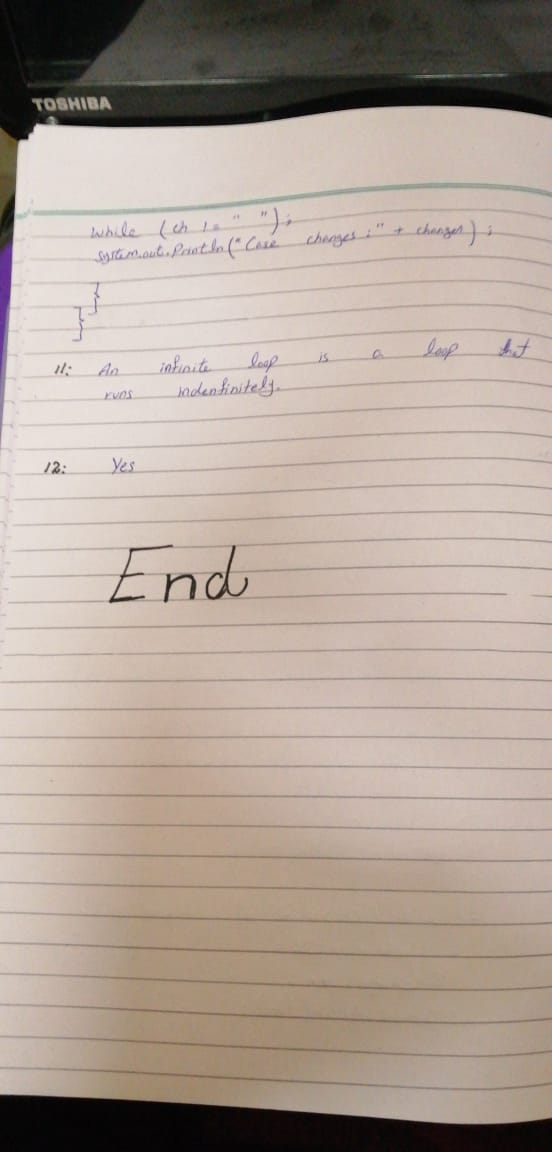 TOSHIBA
while (ch != " ");
System.out.Println("Case changes :" + changes);
}
}
11: An infinite loop is a loop that
runs indenfinitely.
12: Yes
End